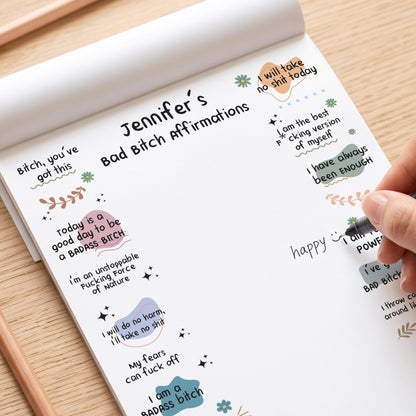 Jennifer's
Bad Bitch Affirmations
Bitch, you've
got this
Today is a
good day to be
a BADASS BITCH
I'm an unstoppable
Fucking Force
of Nature
I will do no harm,
I'll take no shit
My fears
can fuck off
I am a
BADASS BITCH
I will take
no shit today
I am the best
F*cking version
of myself
I have always
been ENOUGH
happy
I am
POWER
I've
BAD BITCH
I throw co
around li